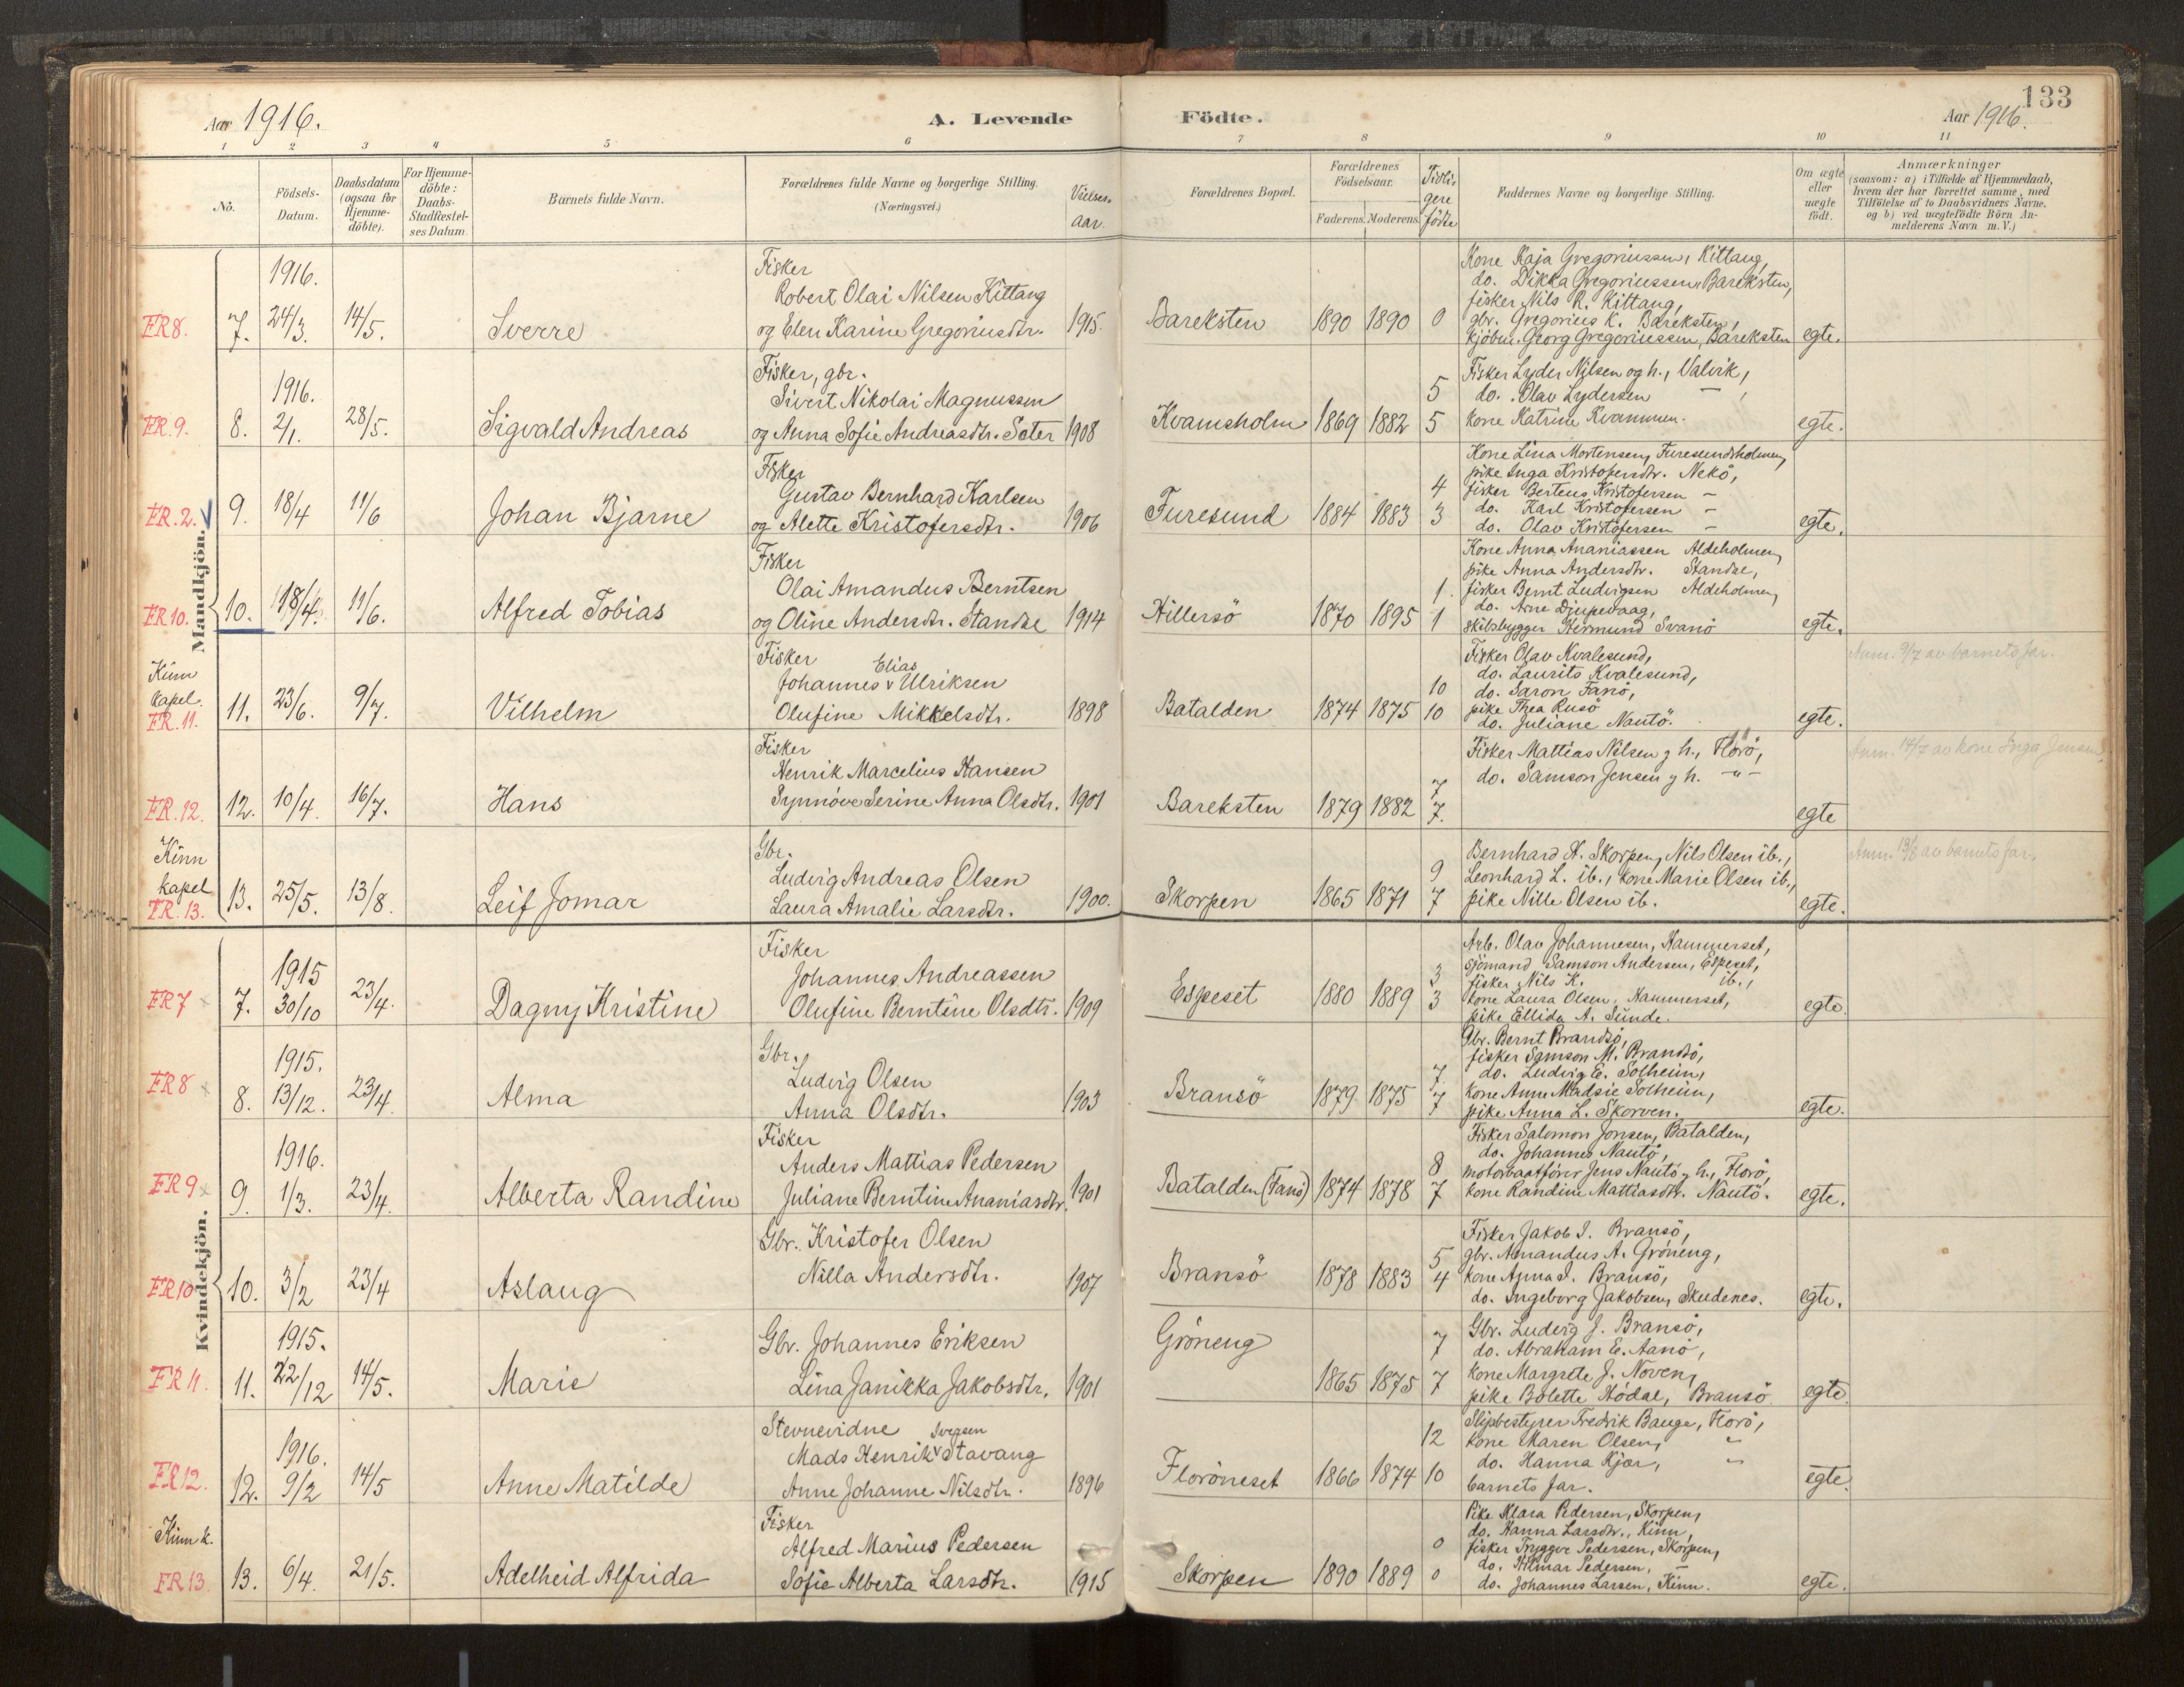 133
Aar 1916.
A. Levende Födte.
Aar 1916.
1 2 3 4 5 6 7 8 9 10 11
Nö.
Födsels-Datum.
Daabsdatum (ogsaa for Hjemme-döbte).
For Hjemme-döbte: Daabs-Stadfæstel-ses Datum.
Barnets fulde Navn.
Forældrenes fulde Navne og borgerlige Stilling. (Næringsvei.)
Vielses-aar.
Forældrenes Bopæl.
Forældrenes Födselsaar.
Faderens. Moderens.
Tidligere födte
Faddernes Navne og borgerlige Stilling.
Om ægte eller uægte födt.
Anmærkninger
(saasom: a) i Tilfælde af Hjemmedaab,
hvem der har forrettet samme, med
Tilföielse af to Daabsvidners Navne,
og b) ved uægtefödte Börn An-
melderens Navn m. V.)
Mandkjön.
FR8. 7. 1916. 24/3. 14/5. Sverre
Fisker
Robert Olai Nilsen Kittang
og Elen Karine Gregoriusdtr. 1915.
Bareksten 1890 1890 0
Kone Kaja Gregoriussen, Kittang,
do. Dikka Gregoriussen, Bareksten,
fisker Nils R. Kittang,
gbr. Gregorius K. Bareksten,
kjöbm. Georg Gregoriussen, Bareksten
egte.
FR.9. 8. 1916. 2/1. 28/5. Sigvald Andreas
Fisker, gbr.
Sivert Nikolai Magnussen
og Anna Sofie Andreasdtr. Seter 1908
Kvamsholm 1869 1882 5 5
Fisker Lyder Nilsen og h., Valvik,
do. Olav Lydersen — ,
kone Katrine Kvammen.
egte.
FR.2. V 9. 18/4 11/6 Johan Bjarne
Fisker
Gustav Bernhard Karlsen
og Alette Kristofersdtr. 1906
Furesund 1884 1883 4 3
Kone Lina Mortensen, Furesundsholmen,
pike Inga Kristofersdtr. Nekö,
fisker Bertens Kristofersen —
do. Karl Kristofersen —
do. Olav Kristofersen —
egte.
FR10. 10. 18/4. 11/6. Alfred Tobias
Fisker
Olai Amandus Berntsen
og Oline Andersdtr. Standal 1914
Hillersö 1870 1895 1 1
Kone Anna Ananiassen Aldeholmen,
pike Anna Andersdtr. Standal,
fisker Bernt Ludvigsen Aldeholmen,
do. Arne Djupevaag,
skibsbygger Hermund Svanö
egte.
Kinn kapel. FR. 11. 11. 23/6. 9/7. Vilhelm
Fisker
Johannes v Elias Ulriksen
Olufine Mikkelsdtr. 1898
Batalden 1874 1875 10 10
Fisker Olav Kvalesund,
do. Laurits Kvalesund,
do. Saron Fanö,
pike Thea Rusö
do. Juliane Nautö.
egte.
Anm. 9/7 av barnets far.
FR.12. 12. 10/4. 16/7. Hans
Fisker
Henrik Marcelius Hansen
Synnöve Serine Anna Olsdtr. 1901
Bareksten 1879 1882 7 7.
Fisker Mattias Nilsen y h., Florö,
do. Samson Jensen y h. -"-
egte
Anm. 14/7 av kone Inga Jensen
Kinn kapel FR. 13. 13. 25/5. 13/8 Leif Jomar
Gbr.
Ludvig Andreas Olsen
Laura Amalie Larsdtr. 1900.
Skorpen 1865 1871 9 7
Bernhard H. Skorpen, Nils Olsen ib.,
Leonhard L. ib., kone Marie Olsen ib.,
pike Nille Olsen ib.
egte.
Anm. 13/8 av barnets far.
Kvindekjön.
FR7 7. 1915 30/10 23/4. Dagny Kristine
Fisker
Johannes Andreassen
Olufine Berntine Olsdtr. 1909
Espeset 1880 1889 3 3
Arb. Olav Johannesen, Hammerset,
sjömand Samson Andersen, Espeset,
fisker Nils K. ib.,
kone Laura Olsen, Hammerset,
pike Ellida A. Sunde.
egte.
FR8 8. 1915. 13/12. 23/4. Alma
Gbr.
Ludvig Olsen
Anna Olsdtr. 1903
Bransö 1879 1875 7 7
Gbr. Bernt Brandsö,
fisker Samson M. Brandsö,
do. Ludvig E. Solheim,
kone Anne Madsie Solheim,
pike Anna L. Skorven.
egte.
FR9 9. 1916. 1/3. 23/4. Alberta Randine
Fisker
Anders Mattias Pedersen
Juliane Berntine Ananiasdtr. 1901
Batalden (Fanö) 1874 1878 8 7
Fisker Salomon Jonsen, Batalden,
do. Johannes Nautö,
motorbaatförer Jens Nautö y h., Florö,
kone Randine Mattiasdtr. Nautö.
egte.
FR10 10. 3/2 23/4 Aslaug
Gbr. Kristofer Olsen
Nilla Andersdtr. 1907
Bransö 1878 1883 5 4
Fisker Jakob I. Bransö,
gbr. Amandus A. Gröneng,
kone Anna I. Bransö,
do. Ingeborg Jakobsen, Skudenes.
egte.
FR11. 11. 1915. 22/12 14/5. Marie
Gbr. Johannes Eriksen
Lina Janikka Jakobsdtr. 1901
Gröneng 1865 1875 7 7
Gbr. Ludvig J. Bransö,
do. Abraham E. Aanö,
kone Margrete J. Noven,
pike Bolette Hödal, Bransö.
egte.
FR12. 12. 1916. 9/2 14/5 Anne Matilde
Stevnevidne
Mads Henrik v Svensen Stavang
Anne Johanne Nilsdtr. 1896
Floröneset 1866 1874 12 10
Slipbestyrer Fredrik Bauge, Florö,
kone Maren Olsen, "
do. Hanna Kjær, "
barnets far.
egte.
Kinn k. FR13 13. 6/4. 21/5. Adelheid Alfrida
Fisker
Alfred Marius Pedersen
Sofie Alberta Larsdtr. 1915
Skorpen 1890 1889 0 0
Pike Klara Pedersen, Skorpen,
do. Hanna Larsdtr., Kinn,
fisker Trygger Pedersen, Skorpen,
do. Hilmar Pedersen, —
do. Johannes Larsen, Kinn.
egte.